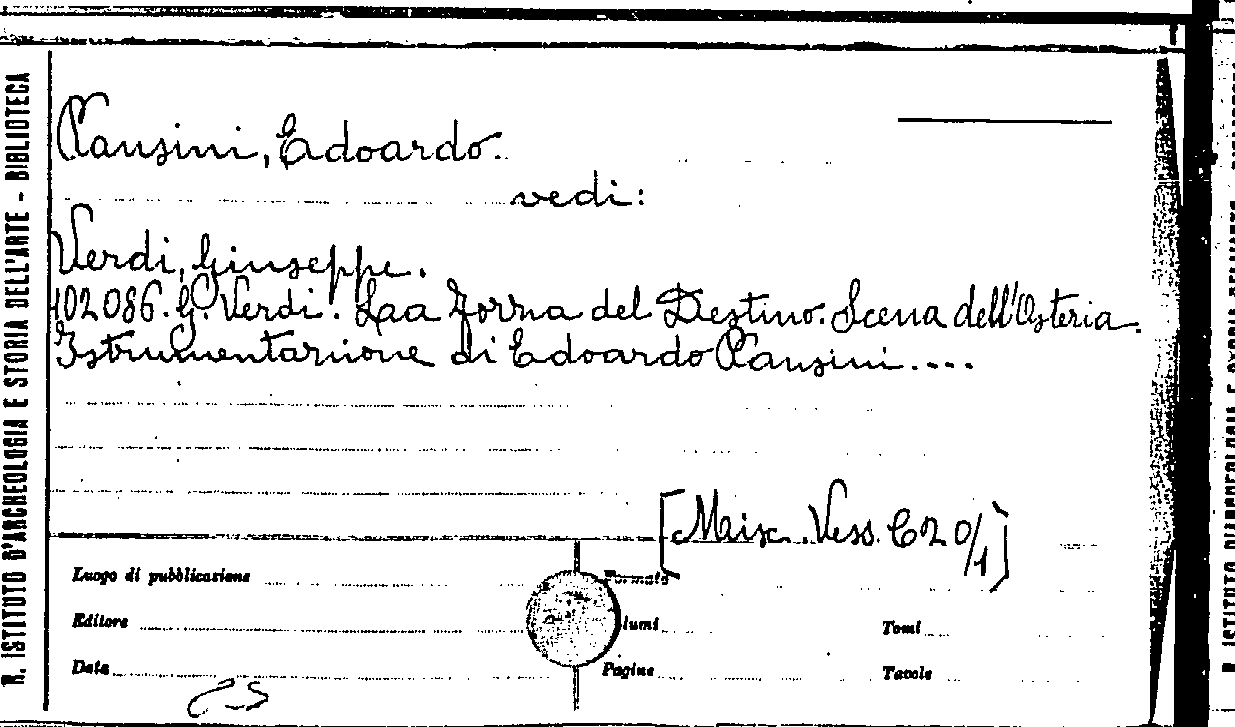 R. ISTITUTO D'ARCHEOLOGIA E STORIA DELL'ARTE - BIBLIOTECA
Pansini, Edoardo.
vedi:
Verdi, Giuseppe.
102086. G. Verdi. Laa Forza del Destino. Scena dell'Osteria.
Istrumentazione di Edoardo Pansini....
[Misc. Vess. C20/1]
Luogo di pubblicazione
Formato
Editore
lumi
Tomi
Data
Pagine
Tavole